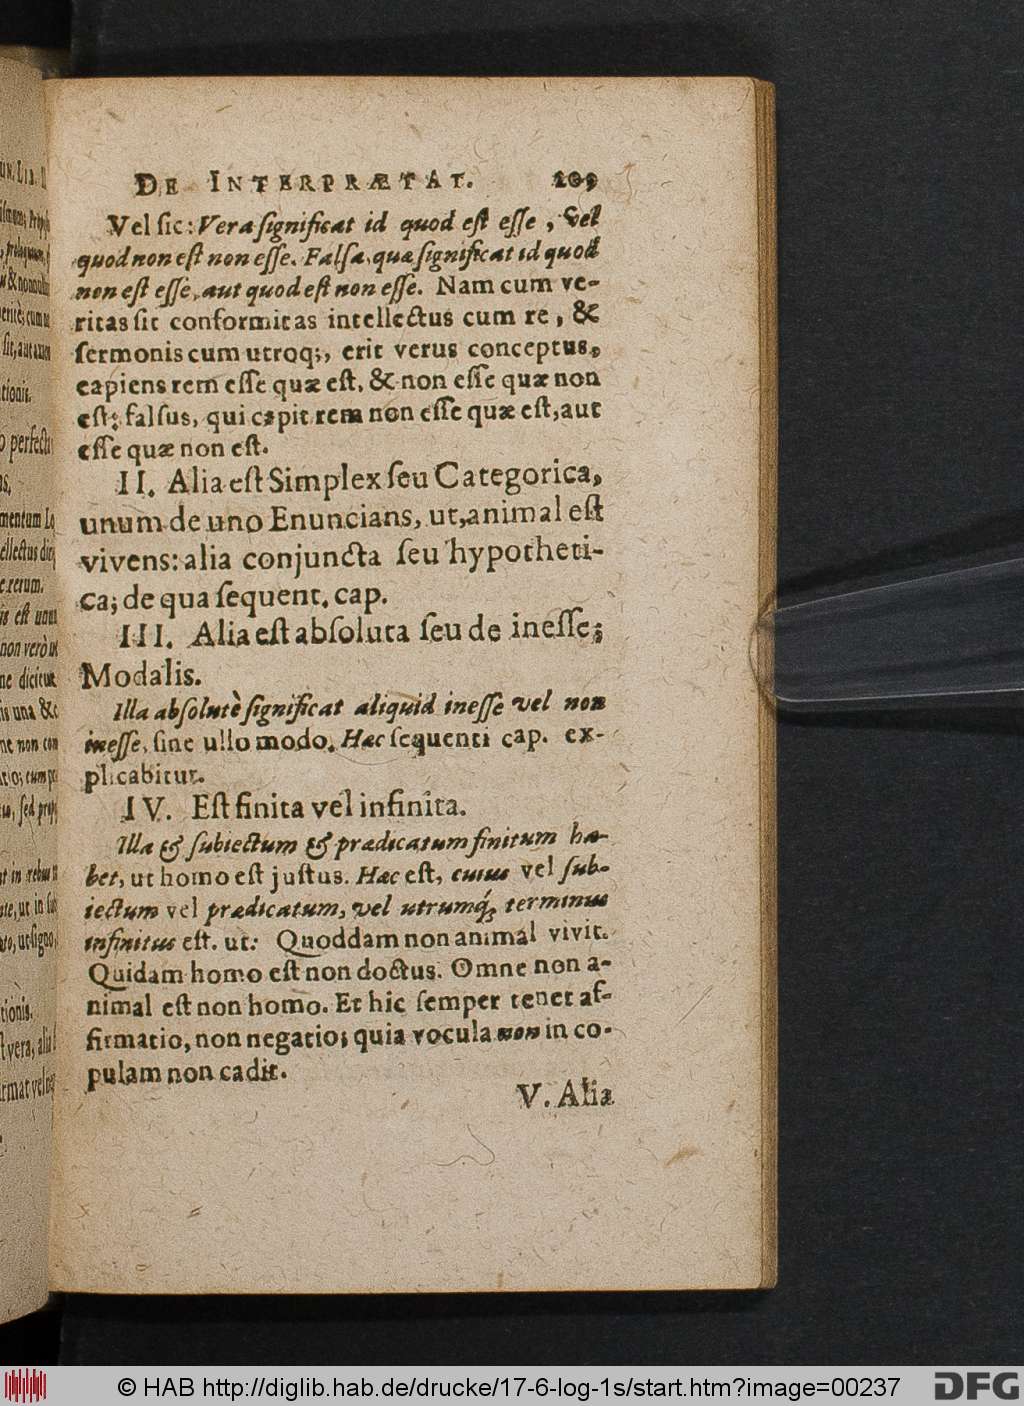 DE INTERPRÆTAT. 209
Vel ſic: Vera ſignificat id quod eſt eſſe, vel
quod non eſt non eſſe. Falſa, quæ ſignificat id quod
non eſt eſſe, aut quod eſt non eſſe. Nam cum ve-
ritas ſit conformitas intellectus cum re, &
ſermonis cum utroq;, erit verus conceptus,
capiens rem eſſe quæ eſt, & non eſſe quæ non
eſt: falſus, qui capit rem non eſſe quæ eſt, aut
eſſe quæ non eſt.
II. Alia eſt Simplex ſeu Categorica,
unum de uno Enuncians, ut, animal eſt
vivens: alia conjuncta ſeu hypotheti-
ca; de qua ſequent. cap.
III. Alia eſt abſoluta ſeu de ineſſe;
Modalis.
Illa abſolutè ſignificat aliquid ineſſe vel non
ineſſe, ſine ullo modo. Hæc ſequenti cap. ex-
plicabitur.
IV. Eſt finita vel infinita.
Illa & ſubiectum & prædicatum finitum ha-
bet, ut homo eſt juſtus. Hæc eſt, cuius vel ſub-
iectum vel prædicatum, vel utrumq́; terminus
infinitus eſt. ut: Quoddam non animal vivit.
Quidam homo eſt non doctus. Omne non a-
nimal eſt non homo. Et hic ſemper tenet af-
firmatio, non negatio; quia vocula non in co-
pulam non cadit.
V. Alia
© HAB http://diglib.hab.de/drucke/17-6-log-1s/start.htm?image=00237
DFG